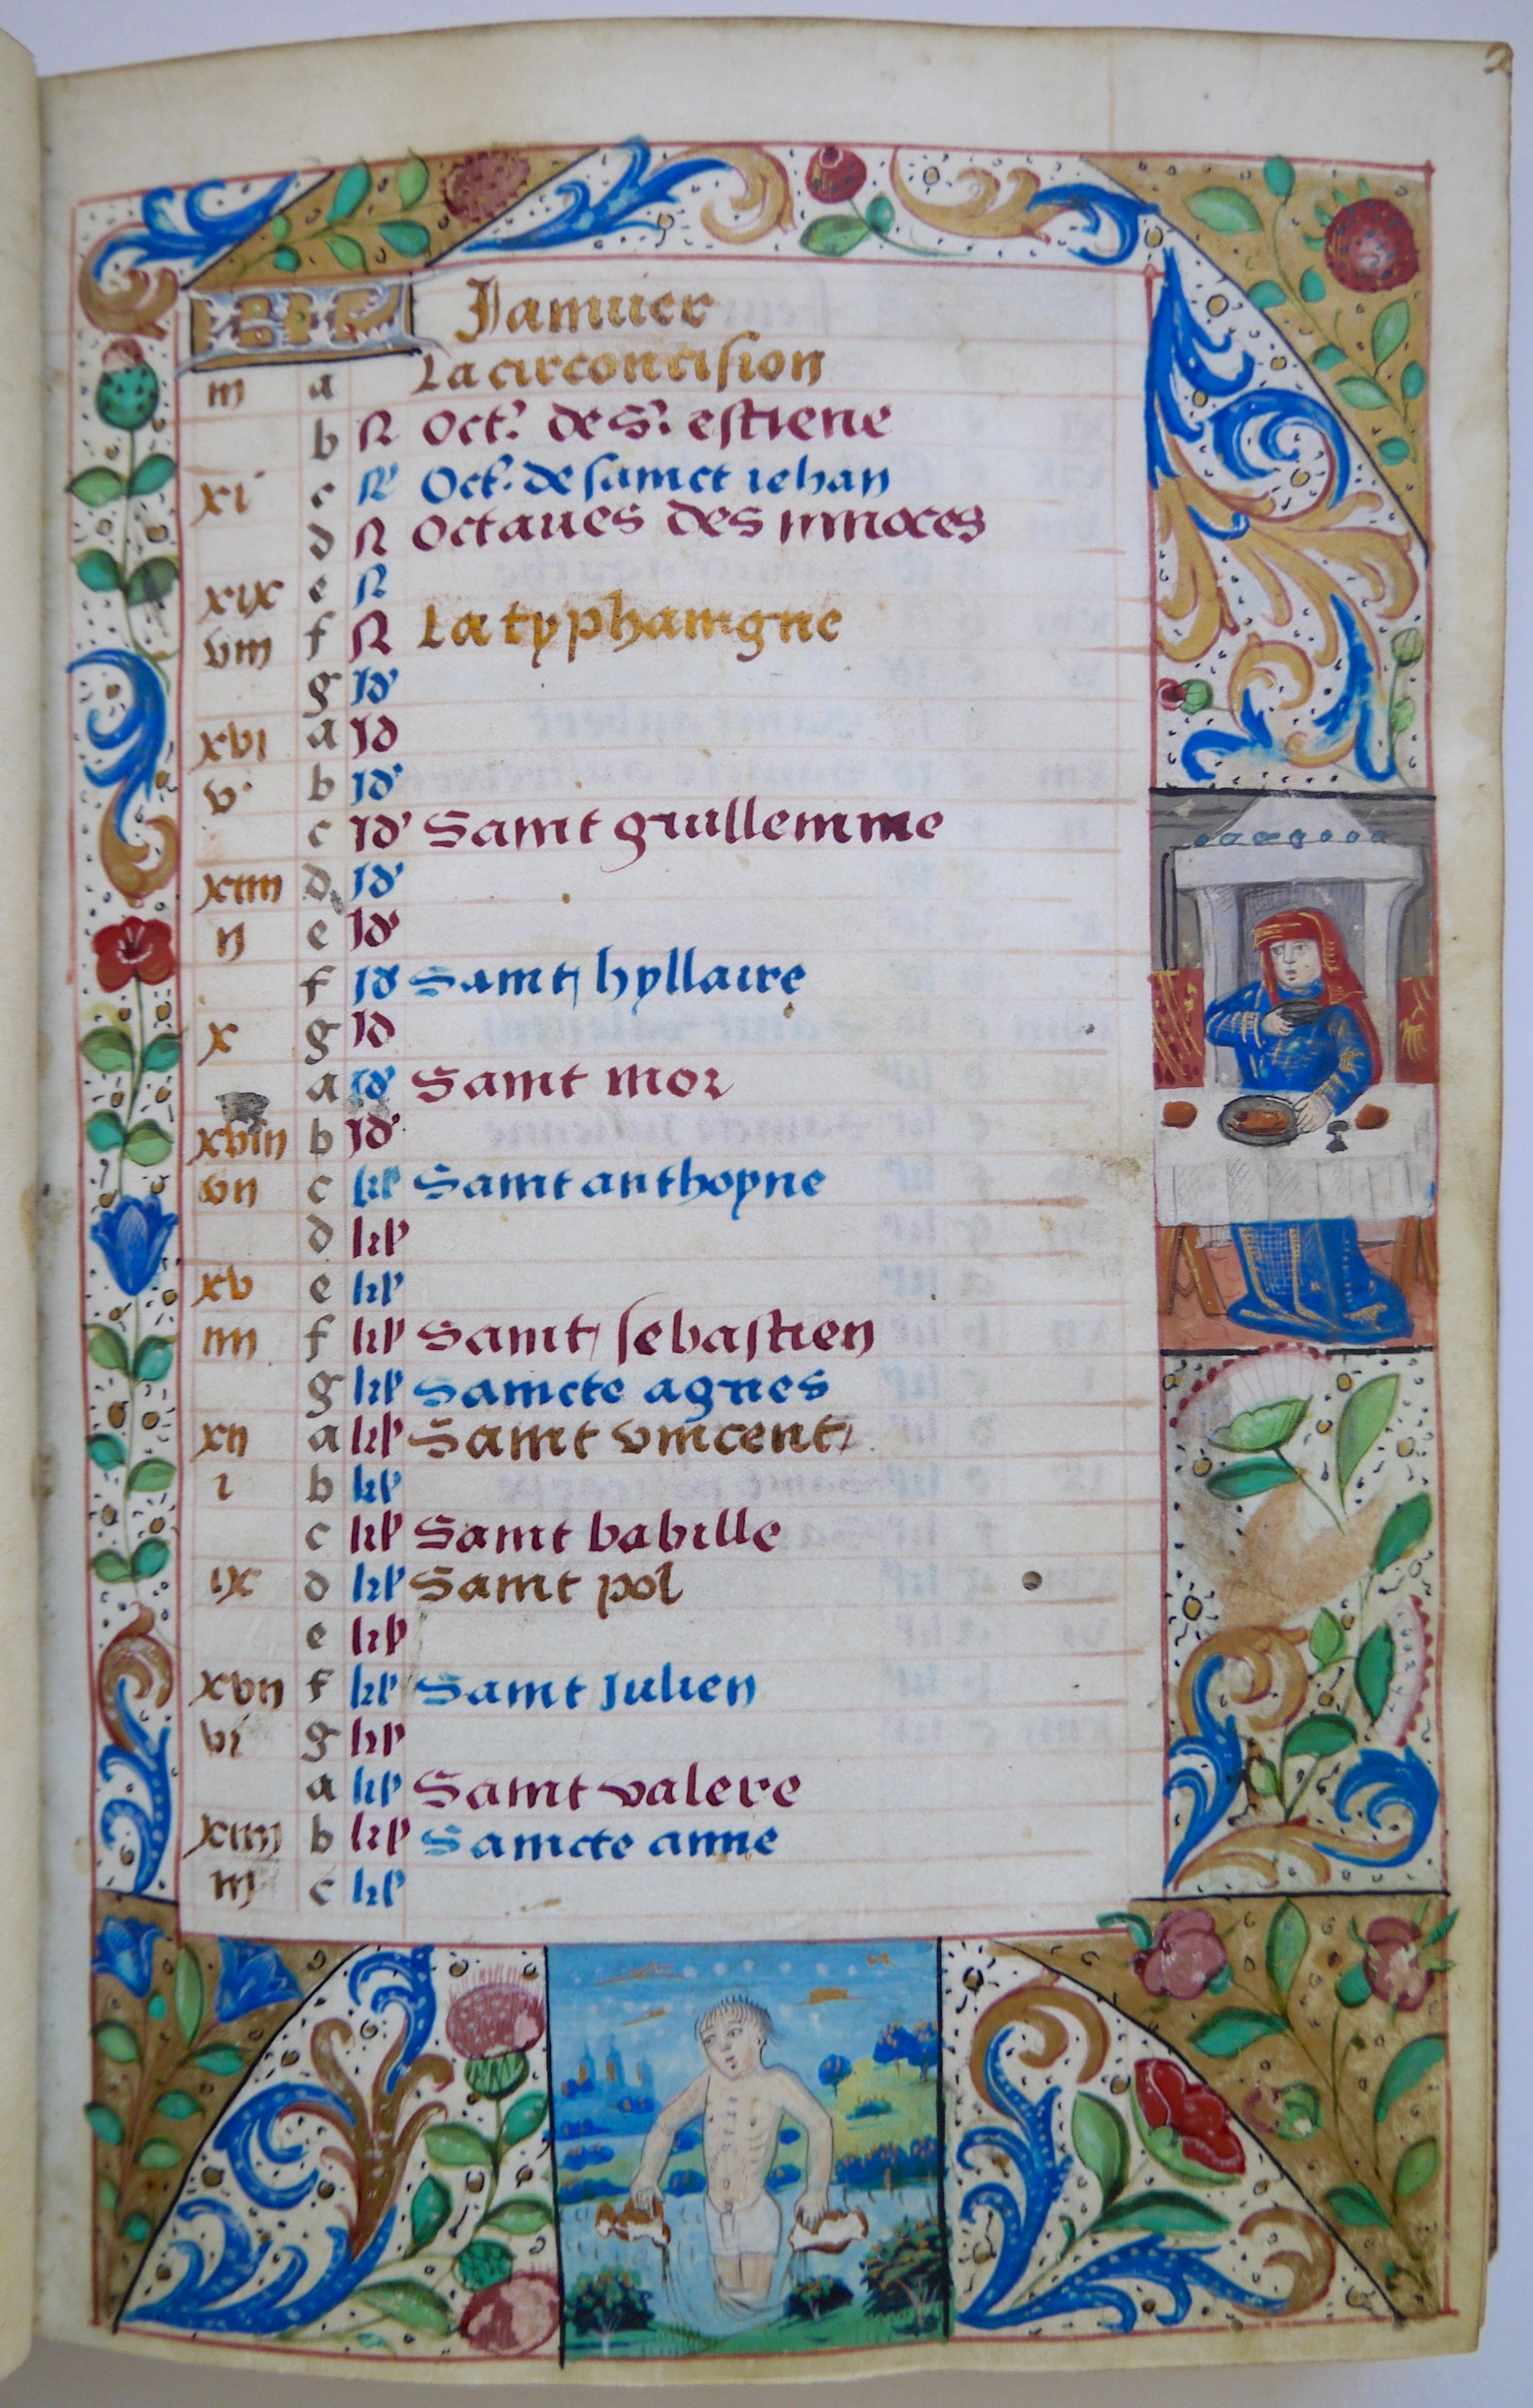 2
KL Januier
iii a La circoncision
b N Oct.' de S.' estiene
xi c N' Oct.' de sainct iehan
d N Octaues des innoces
xix e N
viii f N La typhaingne
g Id'
xvi a Id
v b Id'
c Id' Saint guillemme
xiii d Id'
ii e Id'
f Id Saint hyllaire
x g Id
a Id' Saint mor
xviii b Id'
vii c kl' Saint anthoyne
d kl'
xv e kl'
iiii f kl' Saint sebastien
g kl' Saincte agnes
xii a kl' Saint vincent
i b kl'
c kl' Saint babille
ix d kl' Saint pol
e kl'
xvii f kl' Saint Julien
vi g kl'
a kl' Saint valere
xiiii b kl' Saincte anne
iii c kl'